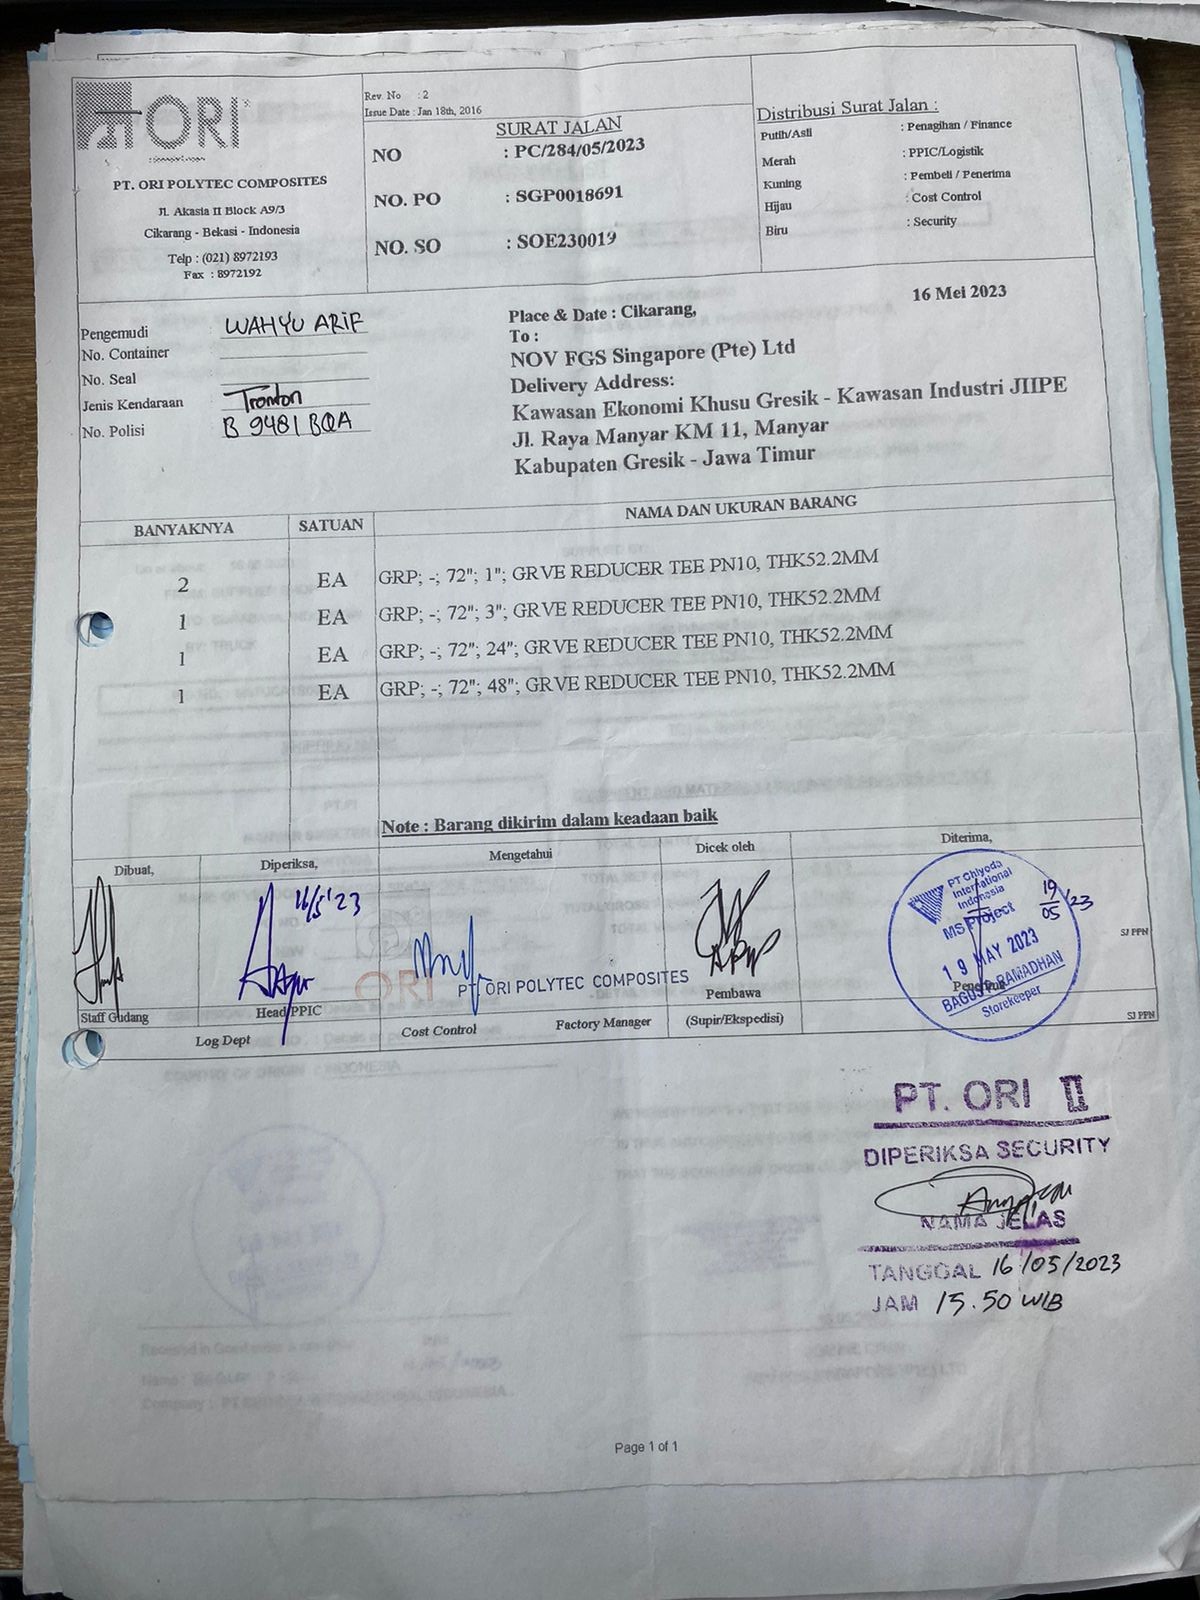 ORI
PT. ORI POLYTEC COMPOSITES
Jl. Akasia II Block A9/3
Cikarang - Bekasi - Indonesia
Telp : (021) 8972193
Fax : 8972192
Rev. No : 2
Issue Date : Jan 18th, 2016
SURAT JALAN
NO : PC/284/05/2023
NO. PO : SGP0018691
NO. SO : SOE230019
Distribusi Surat Jalan :
Putih/Asli : Penagihan / Finance
Merah : PPIC/Logistik
Kuning : Pembeli / Penerima
Hijau : Cost Control
Biru : Security
Pengemudi WAHYU ARIF
No. Container
No. Seal
Jenis Kendaraan Tronton
No. Polisi B 9481 BQA
Place & Date : Cikarang, 16 Mei 2023
To :
NOV FGS Singapore (Pte) Ltd
Delivery Address:
Kawasan Ekonomi Khusu Gresik - Kawasan Industri JIIPE
Jl. Raya Manyar KM 11, Manyar
Kabupaten Gresik - Jawa Timur
BANYAKNYA SATUAN NAMA DAN UKURAN BARANG
2 EA GRP; -; 72"; 1"; GRVE REDUCER TEE PN10, THK52.2MM
1 EA GRP; -; 72"; 3"; GRVE REDUCER TEE PN10, THK52.2MM
1 EA GRP; -; 72"; 24"; GRVE REDUCER TEE PN10, THK52.2MM
1 EA GRP; -; 72"; 48"; GRVE REDUCER TEE PN10, THK52.2MM
Note : Barang dikirim dalam keadaan baik
Dibuat, Diperiksa, Mengetahui Dicek oleh Diterima,
16/5'23
ORI
PT. ORI POLYTEC COMPOSITES
PT Chiyoda
International
Indonesia
MS Project
19/05/23
19 MAY 2023
BAGUS P. RAMADHAN
Storekeeper
SJ PPN
Staff Gudang Head PPIC Pembawa Penerima
Log Dept Cost Control Factory Manager (Supir/Ekspedisi)
SJ PPN
PT. ORI II
DIPERIKSA SECURITY
NAMA JELAS
TANGGAL 16/05/2023
JAM 15.50 WIB
Page 1 of 1